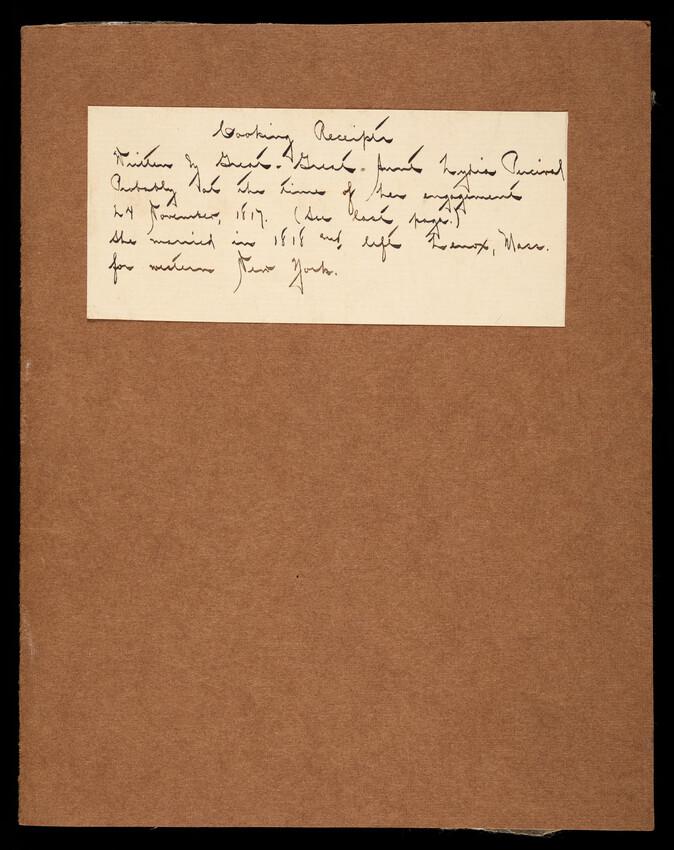 Cooking Receipts
Written by Great-Great-Aunt Lydia Percival
Probably at the time of her engagement
24 November, 1817. (See last page.)
She married in 1818 and left Lenox, Mass.
for western New York.